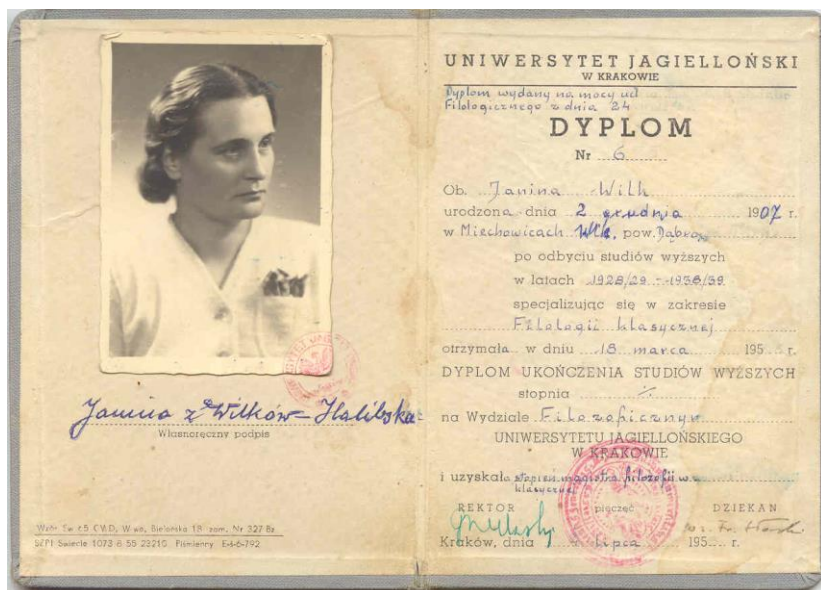 Janina z Wilków-Halibska
Własnoręczny podpis
Wzór Sw c5 CWD, W-wa, Bielańska 18 zam. Nr 327 Bz
SZPT Świecie 1073 6 55 23210 Piśmienny E-4-6-792
UNIWERSYTET JAGIELLOŃSKI
W KRAKOWIE
Dyplom wydany na mocy
Filologicznego z dnia 24
DYPLOM
Nr 6
Ob. Janina Wilk
urodzona dnia 2 grudnia 1907 r.
w Miechowicach Wlk. pow.
po odbyciu studiów wyższych
w latach 1928/29 - 1938/39
specjalizując się w zakresie
Filologii klasycznej
otrzymała w dniu 18 marca 195 r.
DYPLOM UKOŃCZENIA STUDIÓW WYŻSZYCH
stopnia
na Wydziale Filozoficznym
UNIWERSYTETU JAGIELLOŃSKIEGO
W KRAKOWIE
i uzyskała stopień magistra filozofii w z.
klasycznej
REKTOR pieczęć DZIEKAN
Kraków, dnia lipca 195 r.